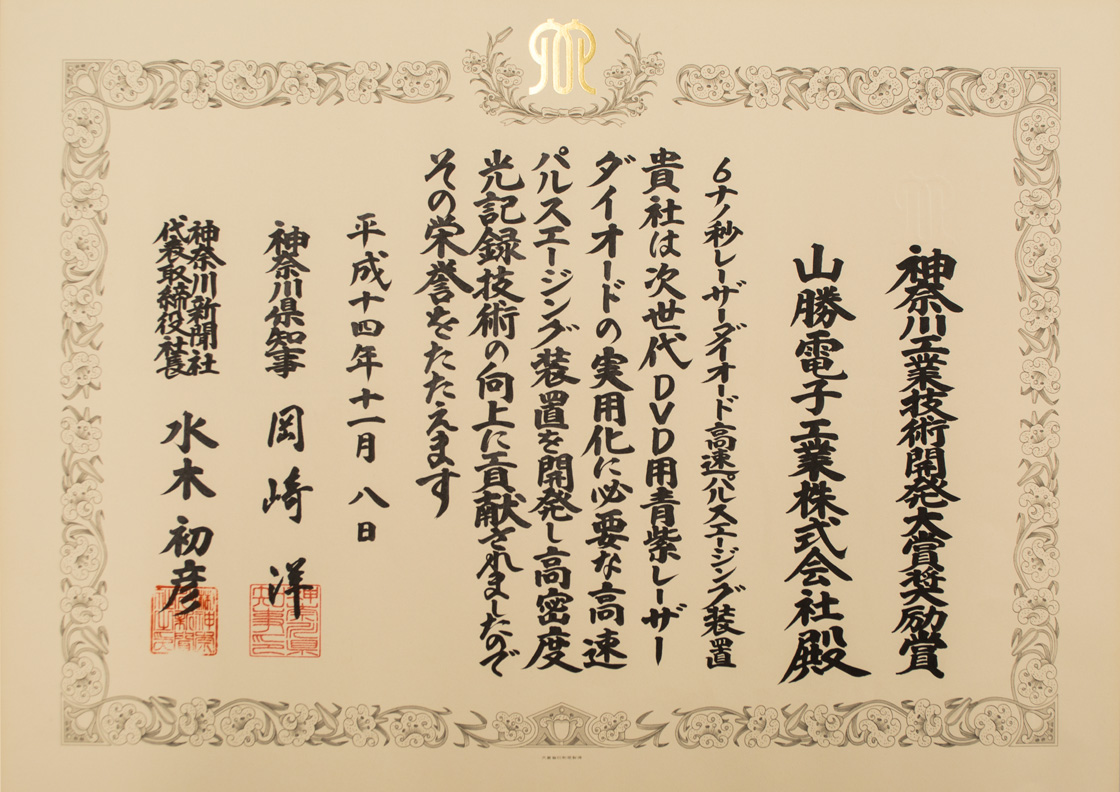 神奈川工業技術開発大賞奨励賞
山勝電子工業株式会社殿
6ナノ秒レーザーダイオード高速パルスエージング装置
貴社は次世代DVD用青紫レーザー
ダイオードの実用化に必要な高速
パルスエージング装置を開発し高密度
光記録技術の向上に貢献されましたので
その栄誉をたたえます
平成十四年十一月八日
神奈川県知事 岡崎洋
神奈川新聞社
代表取締役社長 水木初彦
神奈川県
知事印